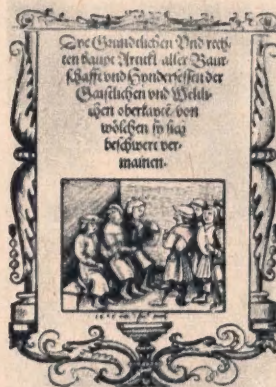 Dye Grundtlichen Vnd rech-
ten haupt Artickl aller Baur-
schafft vnd Hyndersessen der
Gaistlichen vnd Weltli-
chen oberkayt / von
wölchen sy sich
beschwert ver-
mainen.